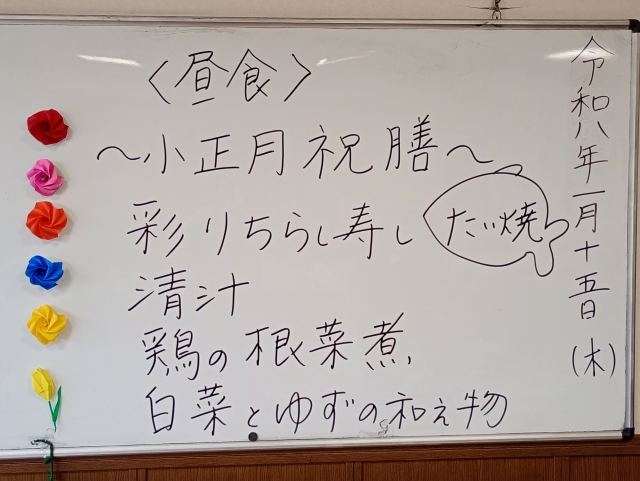 令和八年一月十五日(木)
〈昼食〉
～小正月祝膳～
彩りちらし寿し
たい焼
清汁
鶏の根菜煮
白菜とゆずの和え物